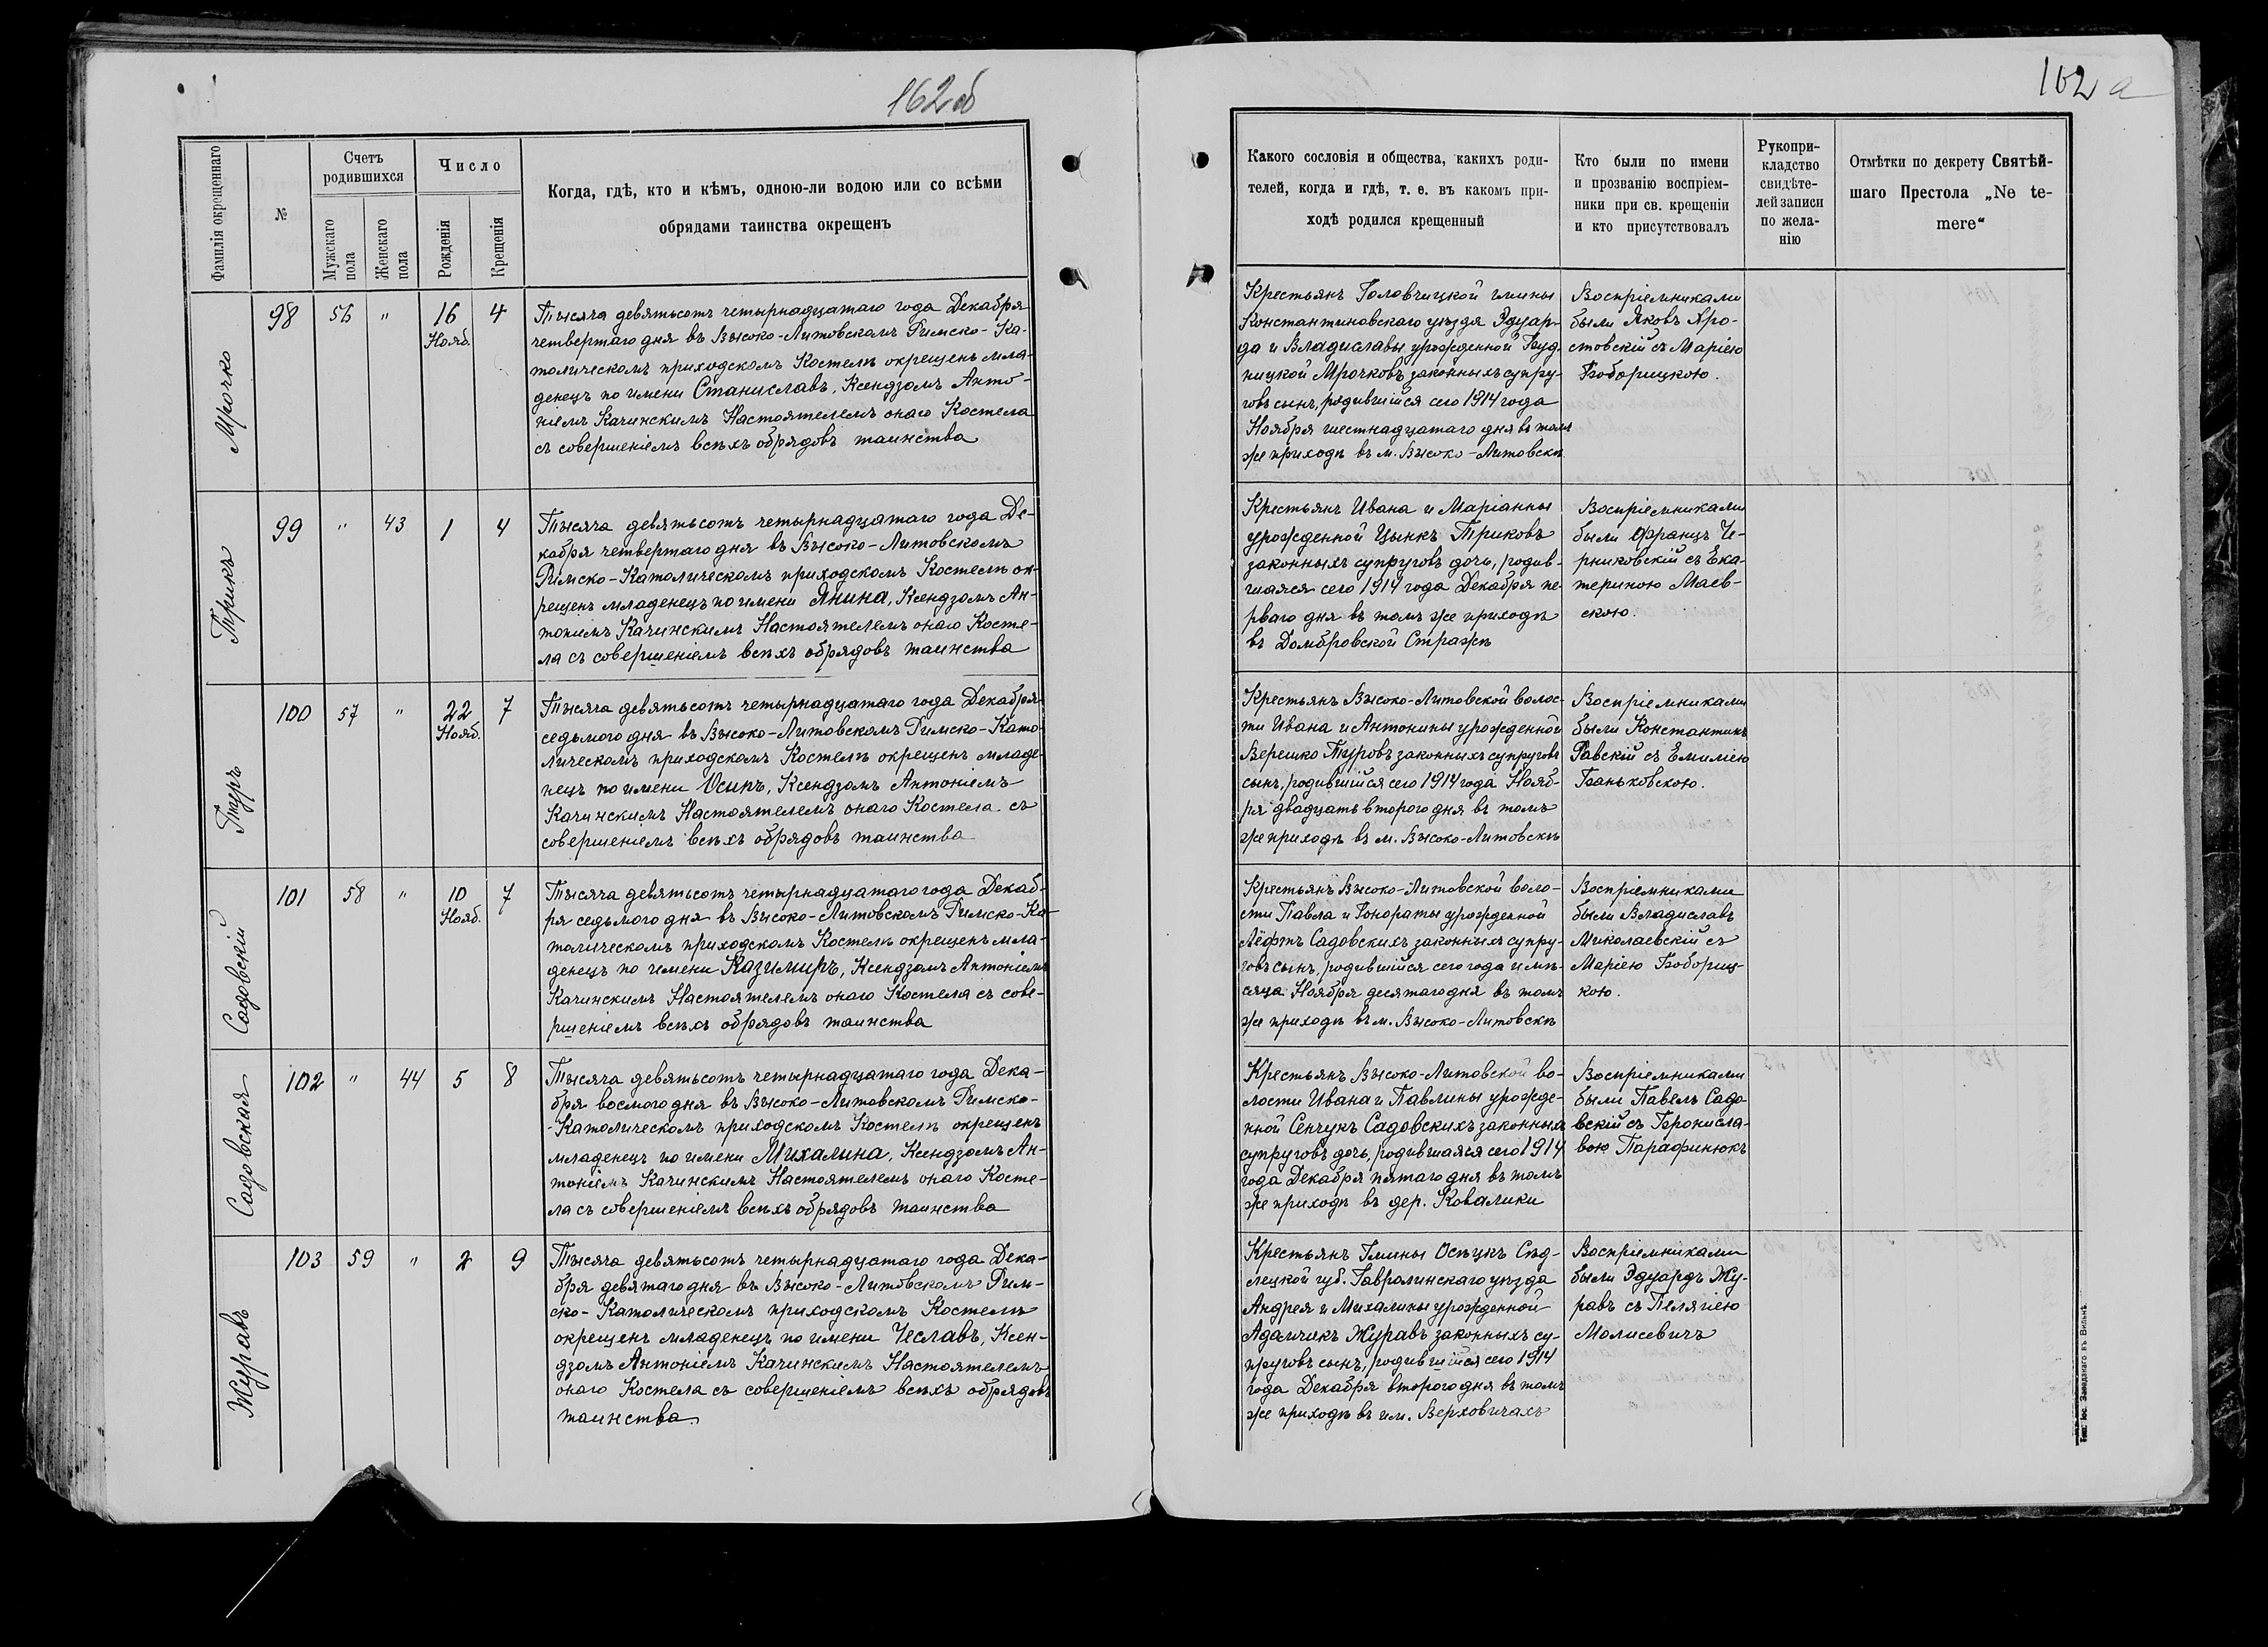 162об
Фамилія окрещеннаго
№
Счетъ родившихся
Мужскаго пола
Женскаго пола
Число
Рожденія
Крещенія
Когда, гдѣ, кто и кѣмъ, одною-ли водою или со всѣми
обрядами таинства окрещенъ
Мрочко
98 56 " 16 Нояб. 4
Тысяча девятьсотъ четырнадцатаго года Декабря
четвертаго дня въ Высоко-Литовскомъ Римско-Ка-
толическомъ приходскомъ Костелѣ окрещенъ мла-
денецъ по имени Станиславъ, Ксендзомъ Анто-
ніемъ Качинскимъ Настоятелемъ онаго Костела
съ совершеніемъ всѣхъ обрядовъ таинства
Трикъ
99 " 43 1 4
Тысяча девятьсотъ четырнадцатаго года Де-
кабря четвертаго дня въ Высоко-Литовскомъ
Римско-Католическомъ приходскомъ Костелѣ ок-
рещенъ младенецъ по имени Янина, Ксендзомъ Ан-
тонимъ Качинскимъ Настоятелемъ онаго Косте-
ла съ совершеніемъ всѣхъ обрядовъ таинства
Туръ
100 57 " 22 Нояб. 7
Тысяча девятьсотъ четырнадцатаго года Декабря
седьмого дня въ Высоко-Литовскомъ Римско-Като-
лическомъ приходскомъ Костелѣ окрещенъ младе-
нецъ по имени Осипъ, Ксендзомъ Антоніемъ
Качинскимъ Настоятелемъ онаго Костела съ
совершеніемъ всѣхъ обрядовъ таинства
Садовскій
101 58 " 10 Нояб. 7
Тысяча девятьсотъ четырнадцатаго года Декаб-
ря седьмого дня въ Высоко-Литовскомъ Римско-Ка-
толическомъ приходскомъ Костелѣ окрещенъ мла-
денецъ по имени Казимиръ, Ксендзомъ Антоніемъ
Качинскимъ Настоятелемъ онаго Костела съ сове-
ршеніемъ всѣхъ обрядовъ таинства
Садовская
102 " 44 5 8
Тысяча девятьсотъ четырнадцатаго года Дека-
бря восмого дня въ Высоко-Литовскомъ Римско-
-Католическомъ приходскомъ Костелѣ окрещенъ
младенецъ по имени Михалина, Ксендзомъ Ан-
тоніемъ Качинскимъ Настоятелемъ онаго Косте-
ла съ совершеніемъ всѣхъ обрядовъ таинства
Журавъ
103 59 " 2 9
Тысяча девятьсотъ четырнадцатаго года Дека-
бря девятаго дня въ Высоко-Литовскомъ Рим-
ско-Католическомъ приходскомъ Костелѣ
окрещенъ младенецъ по имени Чеславъ, Ксен-
дзомъ Антоніемъ Качинскимъ Настоятелемъ
онаго Костела съ совершеніемъ всѣхъ обрядовъ
таинства
162 а
Какого сословія и общества, какихъ роди-
телей, когда и гдѣ, т. е. въ какомъ при-
ходѣ родился крещенный
Кто были по имени
и прозванію воспріем-
ники при св. крещеніи
и кто присутствовалъ
Рукопри-
кладство
свидѣте-
лей записи
по жела-
нію
Отмѣтки по декрету Святѣй-
шаго Престола „Ne te-
mere“
Крестьянъ Головчицкой гмины
Константиновскаго уѣзда Эдуар-
да и Владиславы урожденной Буд-
ницкой Мрочковъ законныхъ супру-
говъ сынъ, родившійся сего 1914 года
Ноября шестнадцатаго дня въ томъ
же приходѣ въ м. Высоко-Литовскѣ
Воспріемниками
были Яковъ Яро-
стовскій съ Маріею
Боборицкою.
Крестьянъ Ивана и Маріанны
урожденной Цынкъ Триковъ
законныхъ супруговъ дочь, родив-
шаяся сего 1914 года Декабря пе-
рваго дня въ томъ же приходѣ
въ Домбровской Стражѣ
Воспріемниками
были Францъ Че-
рниковскій съ Ека-
териною Маев-
скою.
Крестьянъ Высоко-Литовской волос-
ти Ивана и Антонины урожденной
Верешко Туровъ законныхъ супруговъ
сынъ, родившійся сего 1914 года Нояб-
ря двадцать второго дня въ томъ
же приходѣ въ м. Высоко-Литовскѣ
Воспріемниками
были Константинъ
Равскій съ Емиліею
Баньковскою.
Крестьянъ Высоко-Литовской воло-
сти Павла и Гонораты урожденной
Лёфтъ Садовскихъ законныхъ супру-
говъ сынъ, родившійся сего года и мѣ-
сяца Ноября десятаго дня въ томъ
же приходѣ въ м. Высоко-Литовскѣ
Воспріемниками
были Владиславъ
Миколаевскій съ
Маріею Бобориц-
кою.
Крестьянъ Высоко-Литовской во-
лости Ивана и Павлины урожде-
нной Сенчукъ Садовскихъ законныхъ
супруговъ дочь, родившаяся сего 1914
года Декабря пятаго дня въ томъ
же приходѣ въ дер. Ковалики
Воспріемниками
были Павелъ Садо-
вскій съ Брониcла-
вою Парафинюкъ
Крестьянъ Гмины Осѣцкъ Сѣд-
лецкой губ. Гавролинскаго уѣзда
Андрея и Михалины урожденной
Адамчикъ Журавъ законныхъ су-
пруговъ сынъ, родившійся сего 1914
года Декабря второго дня въ томъ
же приходѣ въ им. Верховичахъ
Воспріемниками
были Эдуардъ Жу-
равъ съ Пелягіею
Малисевичъ
Тип. Іос. Завадзкаго въ Вильнѣ.